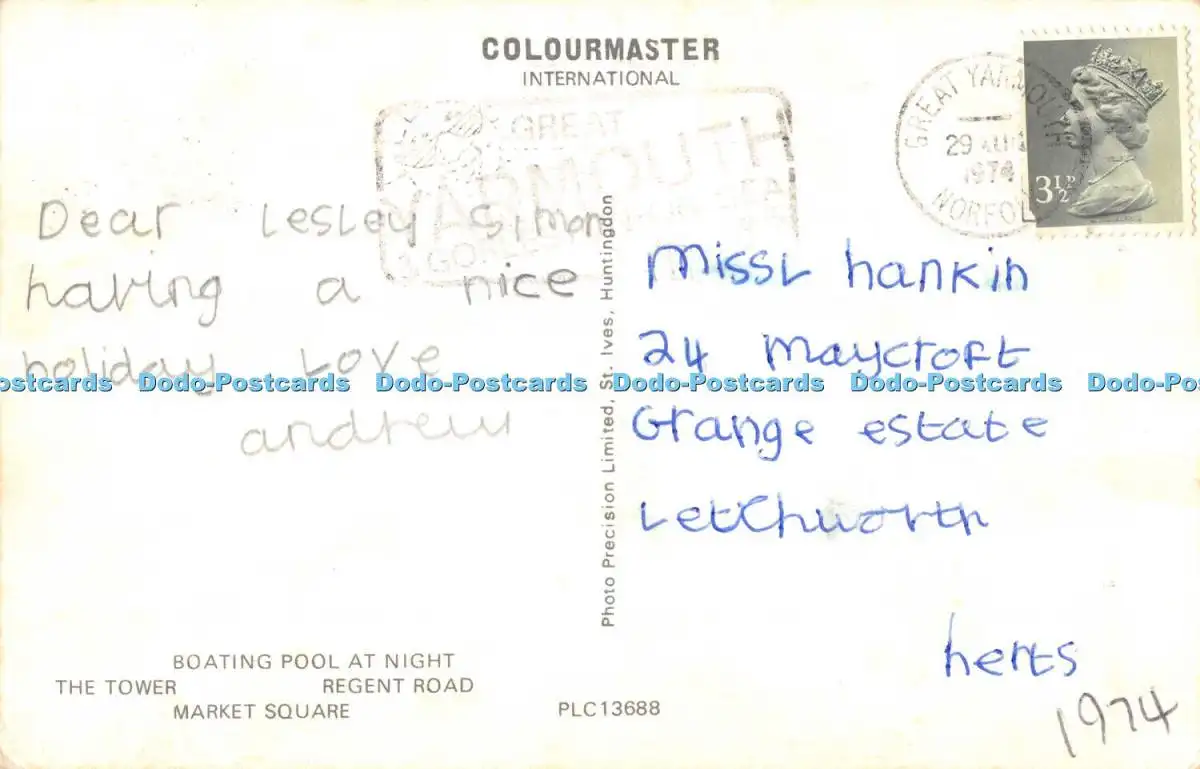 COLOURMASTER
INTERNATIONAL
GREAT
YARMOUTH
GREAT YARMOUTH
29 AUG
1974
NORFOLK
3½P
Dear Lesley Simon
having a nice
holiday Love
andrew
Photo Precision Limited, St. Ives, Huntingdon
MissL hankin
24 Maycroft
Grange estate
Letchworth
herts
1974
Dodo-Postcards Dodo-Postcards Dodo-Postcards Dodo-Postcards Dodo-Postcards
BOATING POOL AT NIGHT
THE TOWER REGENT ROAD
MARKET SQUARE
PLC13688